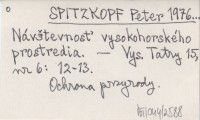 SPITZKOPF Peter 1976...
Návštevnosť vysokohorského
prostredia. — Vys. Tatry 15,
nr 6: 12-13.
Ochrona przyrody.